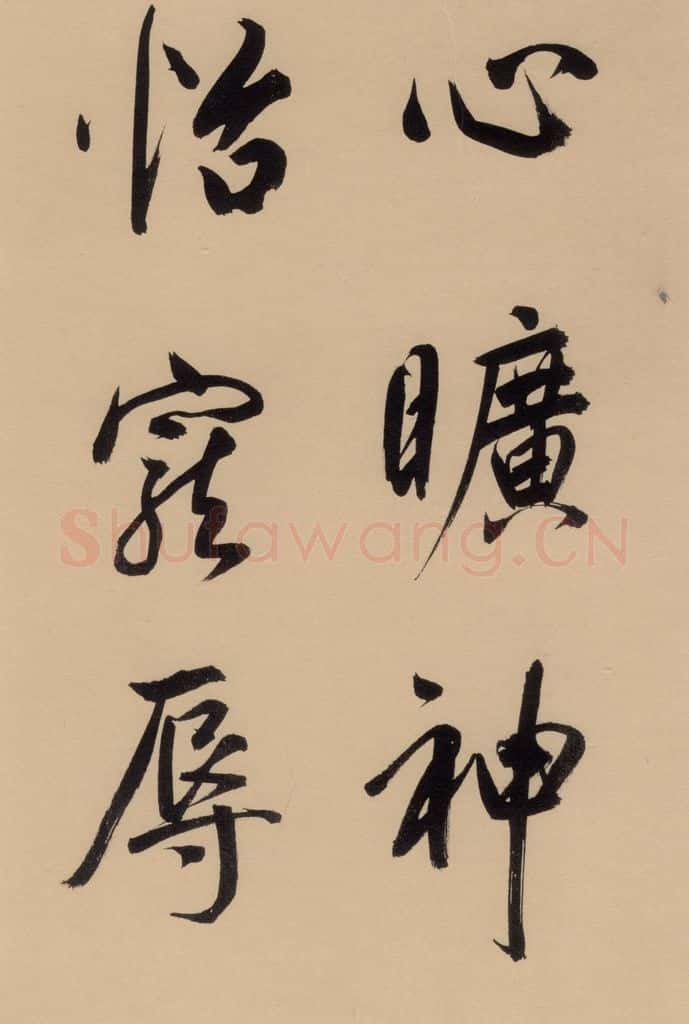 心曠神
怡寵辱
Shufawang.CN